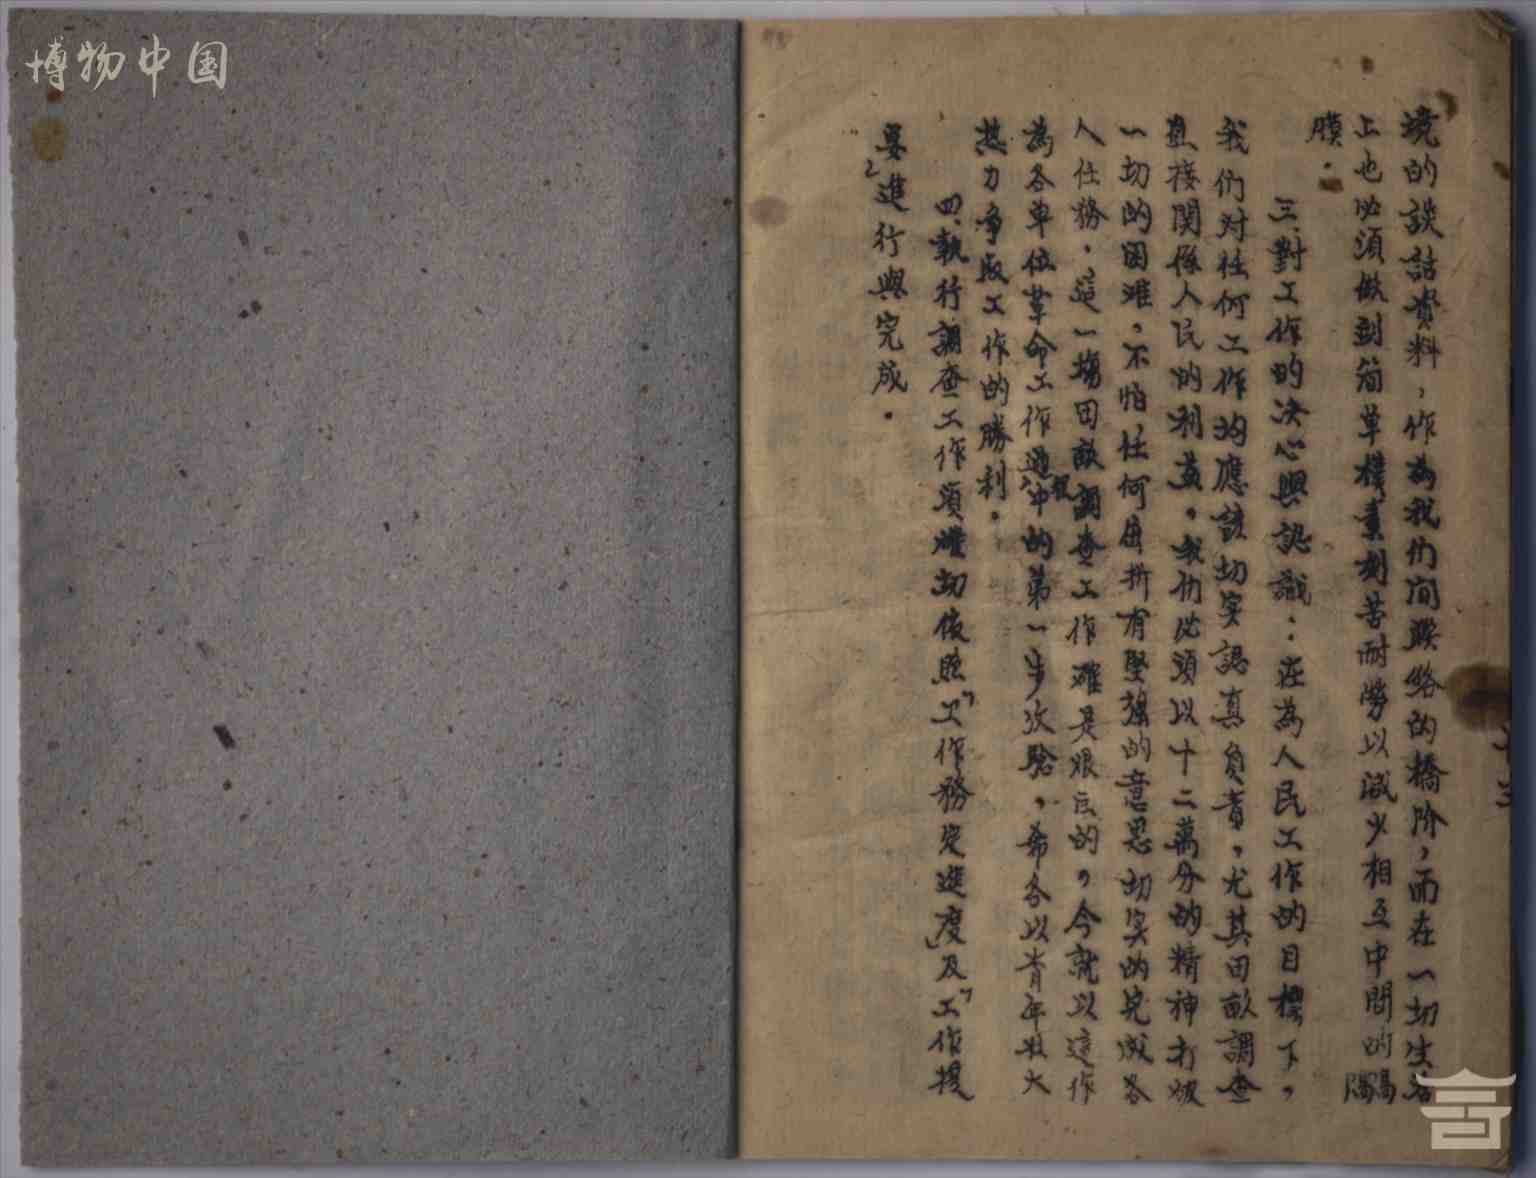 博物中国
境的談話資料，作為我们間联络的橋阶，而在一切生活
上也必須做到简单樸素刻苦耐勞以減少相互中間的隔
膜．
三、對工作的决心與認識：在為人民工作的目標下，
我们对任何工作均應該切实認真負責，尤其田畝調查
直接関係人民的利益，我们必須以十二萬分的精神打破
一切的困难，不怕任何屈折有坚强的意思切实的完成各
人任務，這一場田畝調查工作確是艰巨的，今就以這作
為各单位革命工作過程中的第一步攷驗，希各以青年壮大
热力争取工作的勝利．
四、執行調查工作須灃切依照"工作務定進度"及"工作提
要"進行與完成．
十三